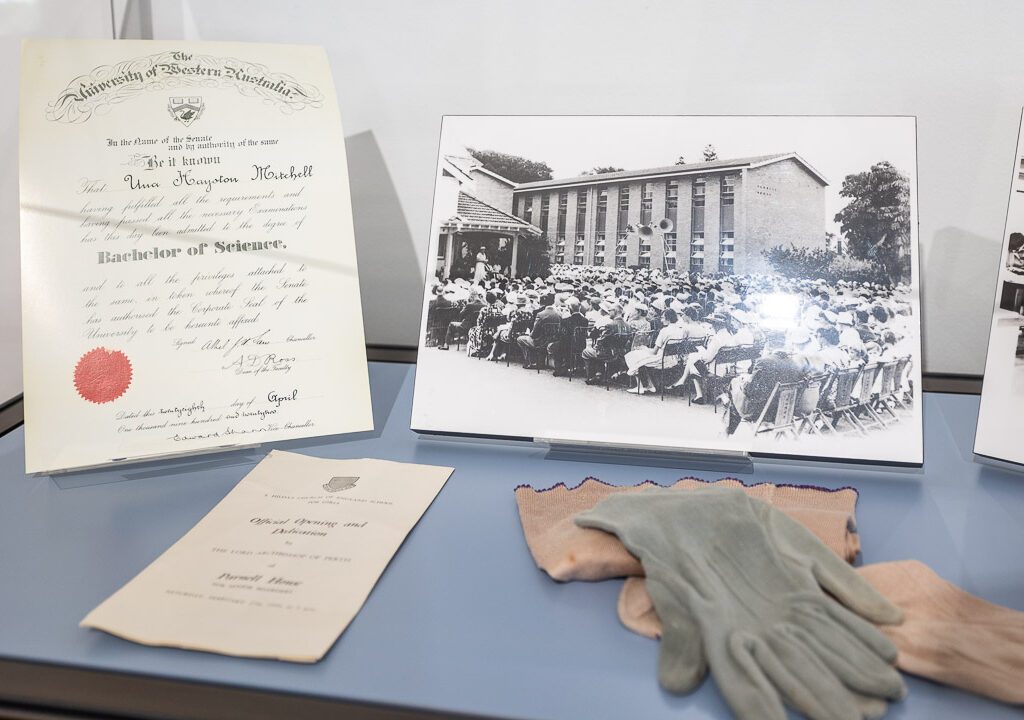 The
University of Western Australia
In the Name of the Senate
and by authority of the same
Be it known
That Una Hayston Mitchell
having fulfilled all the requirements and
having passed all the necessary Examinations
has this day been admitted to the degree of
Bachelor of Science.
and to all the privileges attached to
the same, in token whereof the Senate
has authorised the Corporate Seal of the
University to be hereunto affixed.
Signed
Chancellor
A D Ross
Dean of the Faculty
Dated this twentyeighth day of April
One thousand nine hundred and twentytwo
Edward Shann Vice Chancellor
S. HILDA'S CHURCH OF ENGLAND SCHOOL
FOR GIRLS
Official Opening and
Dedication
by
THE LORD ARCHBISHOP OF PERTH
of
Parnell House
FOR SENIOR BOARDERS
SATURDAY, FEBRUARY